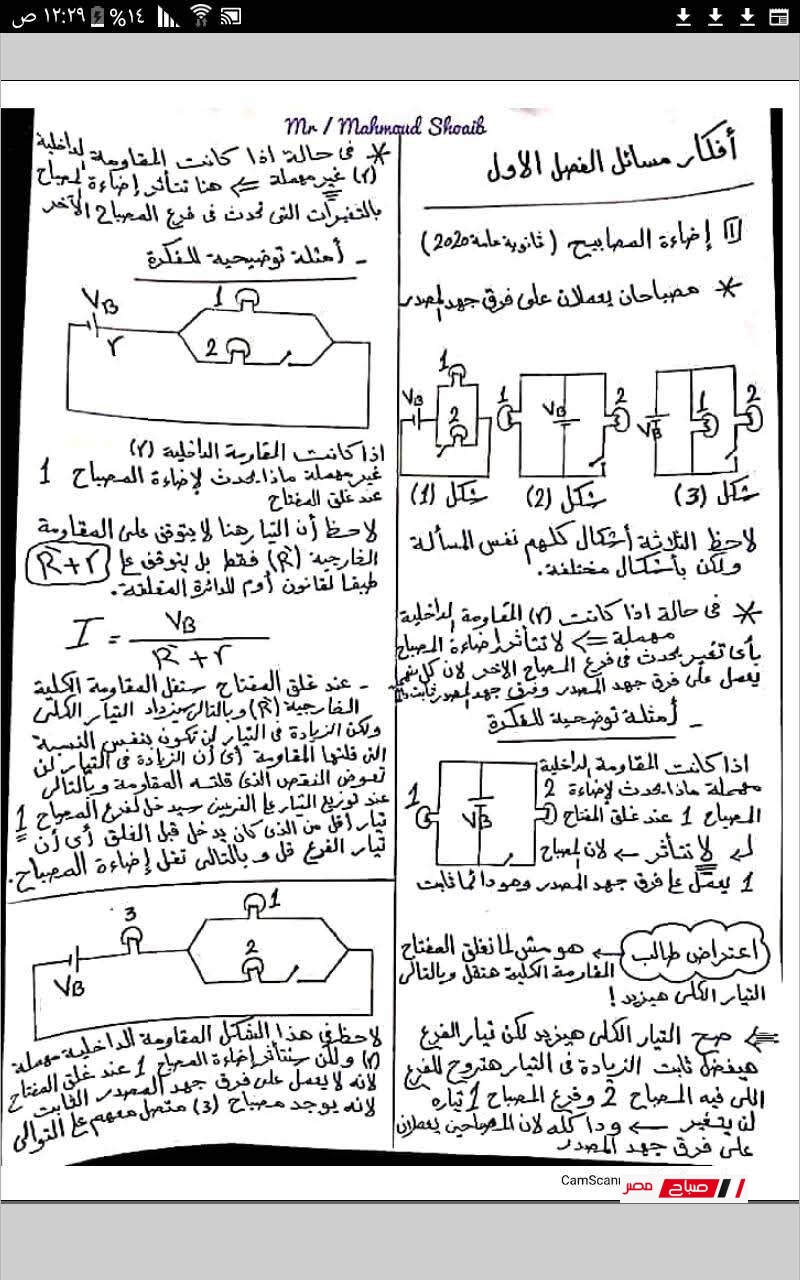 ١٢:٢٩ ص
%١٤
Mr / Mahmoud Shoaib
أفكار مسائل الفصل الأول
1 إضاءة المصابيح (ثانوية عامة 2020)
* مصباحان يعملان على فرق جهد المصدر
1
VB
2
شكل (1)
1
VB
2
شكل (2)
VB
1
2
شكل (3)
لاحظ الثلاثة أشكال كلهم نفس المسألة
ولكن بأشكال مختلفة.
* فى حالة اذا كانت (r) المقاومة الداخلية
مهملة ⇐ لا تتأثر إضاءة المصباح
بأى تغير يحدث فى فرع المصباح الآخر لان كل منهم
يعمل على فرق جهد المصدر وفرق جهد المصدر ثابت
- أمثلة توضيحية للفكرة
اذا كانت المقاومة الداخلية
مهملة ماذا يحدث لإضاءة
المصباح 1 عند غلق المفتاح
1
VB
2
لا تتأثر ← لان المصباح
1 يعمل على فرق جهد المصدر وهو دائما ثابت
اعتراض طالب ← هو مش لما نغلق المفتاح
المقاومة الكلية هتقل وبالتالى
التيار الكلى هيزيد!
⇐ صح التيار الكلى هيزيد لكن تيار الفرع
هيفضل ثابت الزيادة فى التيار هتروح للفرع
اللى فيه المصباح 2 وفرع المصباح 1 تياره
لن يتغير ← ودا كله لان المصباحين يعملان
على فرق جهد المصدر
* فى حالة اذا كانت المقاومة الداخلية
(r) غير مهملة ⇐ هنا تتأثر إضاءة المصباح
بالتغيرات التى تحدث فى فرع المصباح الآخر
- أمثلة توضيحية للفكرة
VB
r
1
2
اذا كانت المقاومة الداخلية (r)
غير مهملة ماذا يحدث لإضاءة المصباح 1
عند غلق المفتاح
لاحظ أن التيار هنا لا يتوقف على المقاومة
الخارجية (R) فقط بل يتوقف على R+r
طبقا لقانون أوم للدائرة المغلقة.
I = VB / R + r
- عند غلق المفتاح ستقل المقاومة الكلية
الخارجية (R) وبالتالى سيزداد التيار الكلى
ولكن الزيادة فى التيار لن تكون بنفس النسبة
التى قلتها المقاومة أى أن الزيادة فى التيار لن
تعوض النقص الذى قلته المقاومة وبالتالى
عند توزيع التيار على الفرعين سيدخل لفرع المصباح 1
تيار أقل من الذى كان يدخل قبل الغلق أى أن
تيار الفرع قل وبالتالى تقل إضاءة المصباح.
3
VB
1
2
لاحظ فى هذا الشكل المقاومة الداخلية مهملة
(r) ولكن ستتأثر إضاءة المصباح 1 عند غلق المفتاح
لانه لا يعمل على فرق جهد المصدر الثابت
لانه يوجد مصباح (3) متصل معهم على التوالى
CamScann
صباح مصر